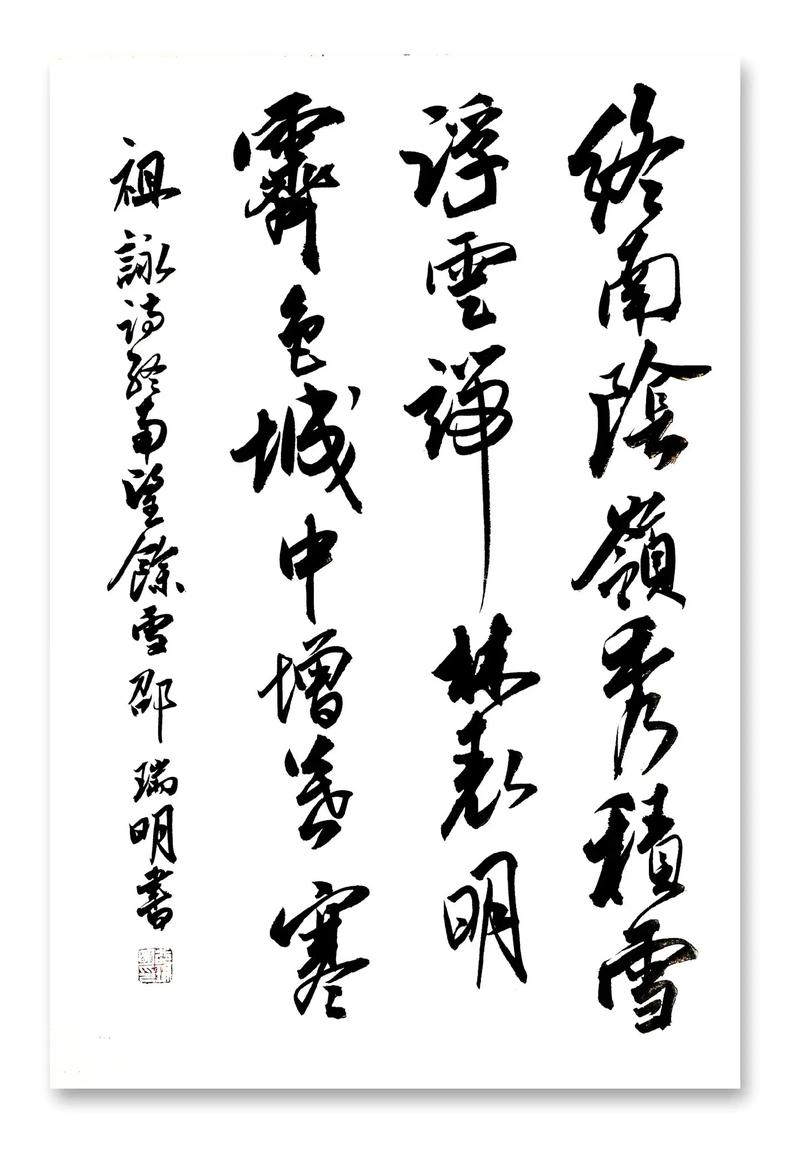 終南陰嶺秀積雪
浮雲端林表明
霽色城中增暮寒
祖詠詩終南望餘雪邵瑞明書